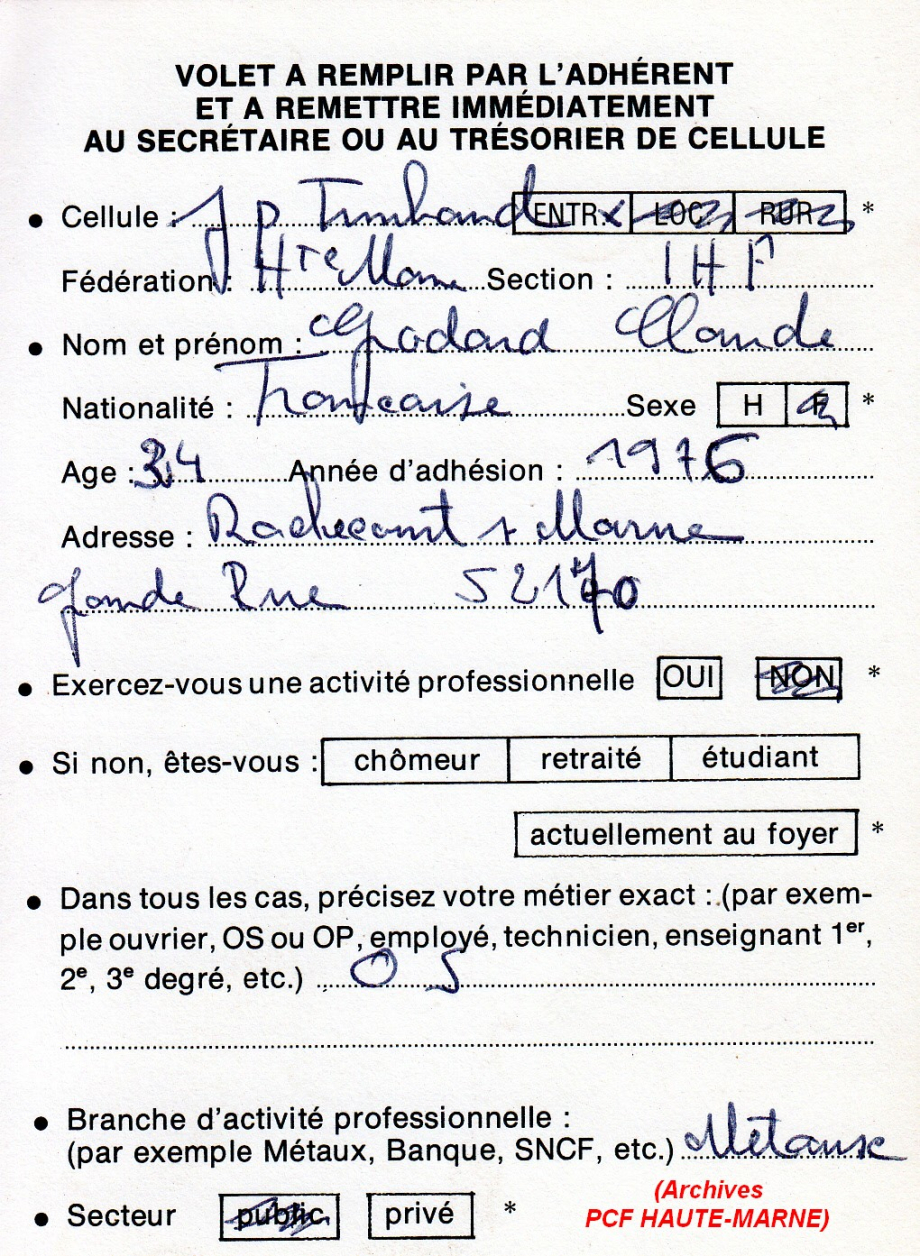 VOLET A REMPLIR PAR L'ADHÉRENT
ET A REMETTRE IMMÉDIATEMENT
AU SECRÉTAIRE OU AU TRÉSORIER DE CELLULE
• Cellule : J p Timbaud ENTR. x LOC. RUR. *
Fédération : Hte Marne Section : IHF
• Nom et prénom : Godard Claude
Nationalité : Française Sexe H F *
Age : 34 Année d'adhésion : 1976
Adresse : Rachecourt s Marne
Grande Rue 52170
• Exercez-vous une activité professionnelle OUI NON *
• Si non, êtes-vous : chômeur retraité étudiant
actuellement au foyer *
• Dans tous les cas, précisez votre métier exact : (par exem-
ple ouvrier, OS ou OP, employé, technicien, enseignant 1er,
2e, 3e degré, etc.) O S
• Branche d'activité professionnelle :
(par exemple Métaux, Banque, SNCF, etc.) Métaux
• Secteur public privé *
(Archives
PCF HAUTE-MARNE)